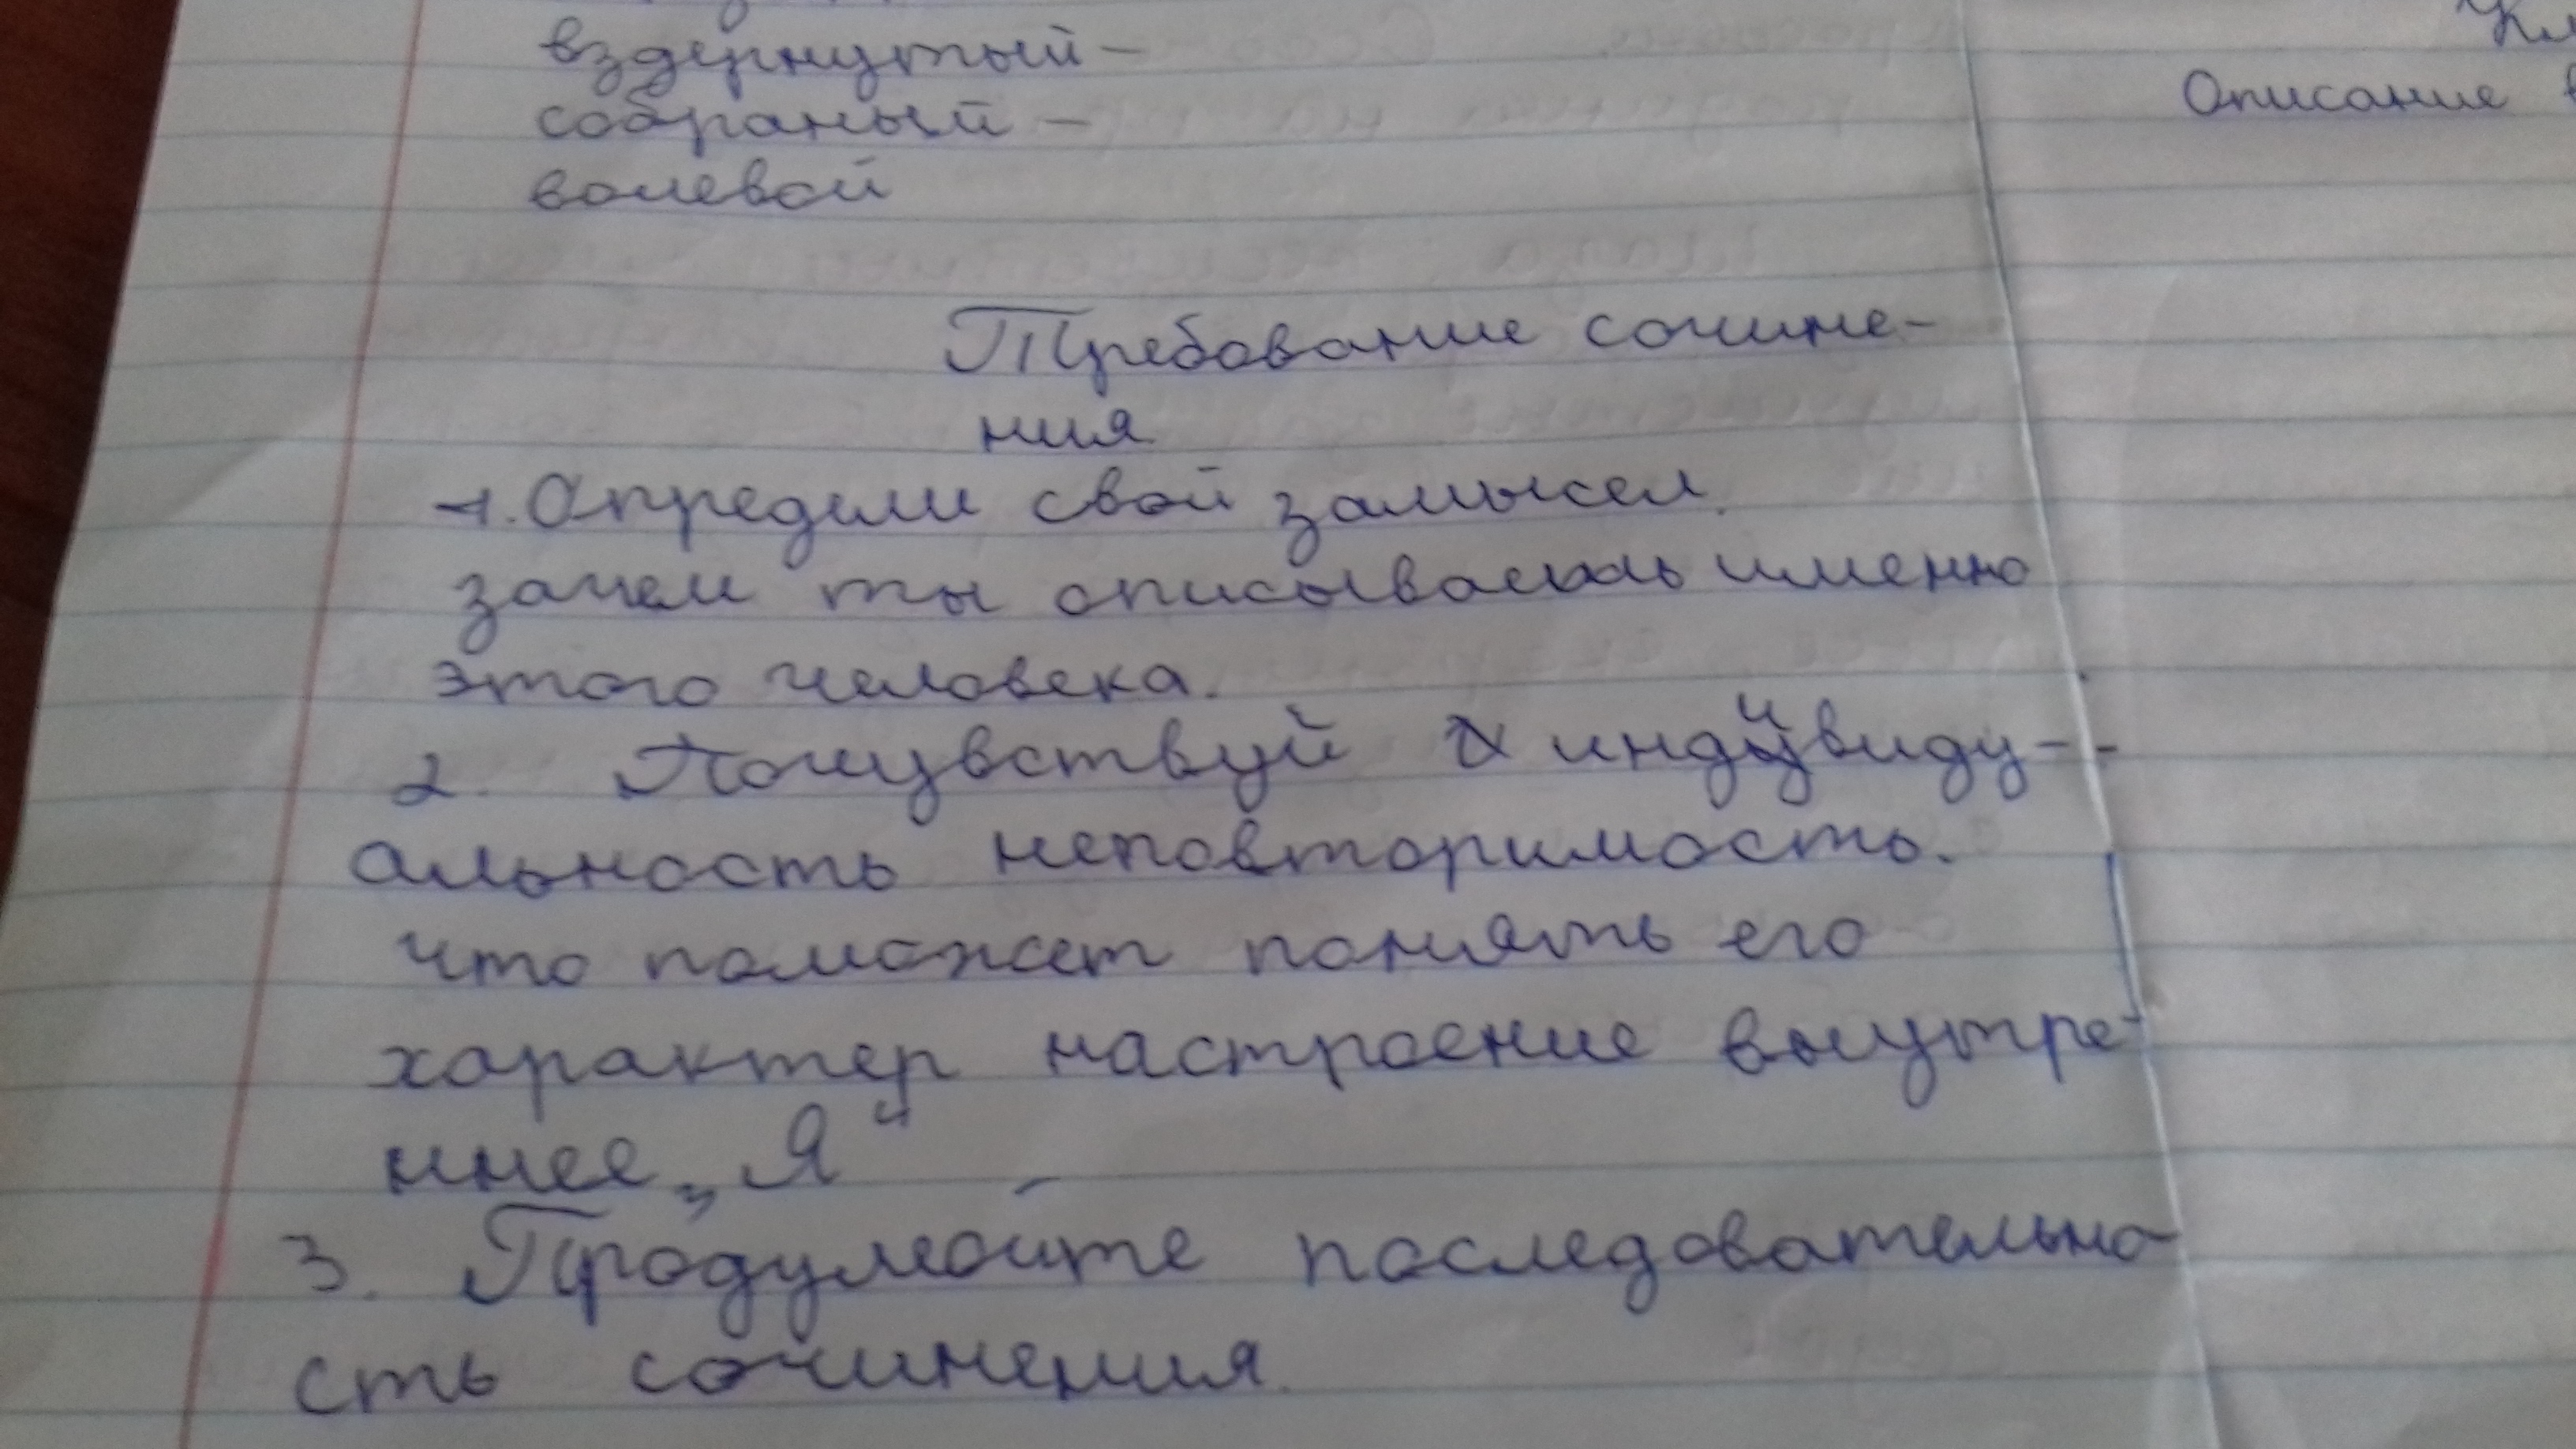 вздёрнутый -
собраный -
волевой
Требование сочине-
ния
1. Определи свой замысел.
зачем ты описываешь именно
этого человека.
2. Почувствуй индивиду-
альность неповторимость.
что поможет понять его
характер настроение внутре-
ннее „Я“
3. Продумайте последовательно
сть сочинения.
Описание